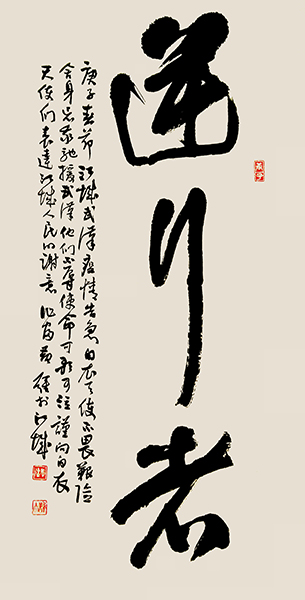 逆行者
庚子春节江城武汉疫情告急白衣天使不畏艰险
舍身忘我驰援武汉他们不辱使命可歌可泣谨向白衣
天使们表达江城人民的谢意
书江城